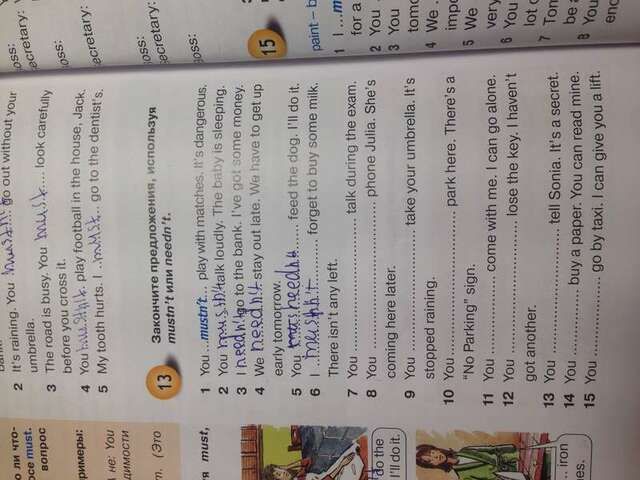 о ли что-
осе must.
вопрос
римеры:
А не: You
димости
m. (Это
must,
do the
I'll do it.
... iron
nes.
2 It's raining. You mustn't go out without your
umbrella.
3 The road is busy. You must.... look carefully
before you cross it.
4 You mustn't. play football in the house, Jack.
5 My tooth hurts. I ..must.. go to the dentist's.
13 Закончите предложения, используя
mustn't или needn't.
1 You ...mustn't... play with matches. It's dangerous.
2 You mustn't talk loudly. The baby is sleeping.
3 I needn't go to the bank. I've got some money.
4 We needn't stay out late. We have to get up
early tomorrow.
5 You needn't...... feed the dog. I'll do it.
6 I ..mustn't............ forget to buy some milk.
There isn't any left.
7 You ........................ talk during the exam.
8 You ........................ phone Julia. She's
coming here later.
9 You ........................ take your umbrella. It's
stopped raining.
10 You........................... park here. There's a
"No Parking" sign.
11 You .................. come with me. I can go alone.
12 You .................. lose the key. I haven't
got another.
13 You ........................ tell Sonia. It's a secret.
14 You ............... buy a paper. You can read mine.
15 You ............... go by taxi. I can give you a lift.
oss:
ecretary:
oss:
ecretary:
oss:
ecretary:
oss:
15
paint – b
1 I ...m
for a
2 You
3 You
tomo
4 We .
impo
5 We
very
6 You
lot o
7 Tom
be a
8 You
enc